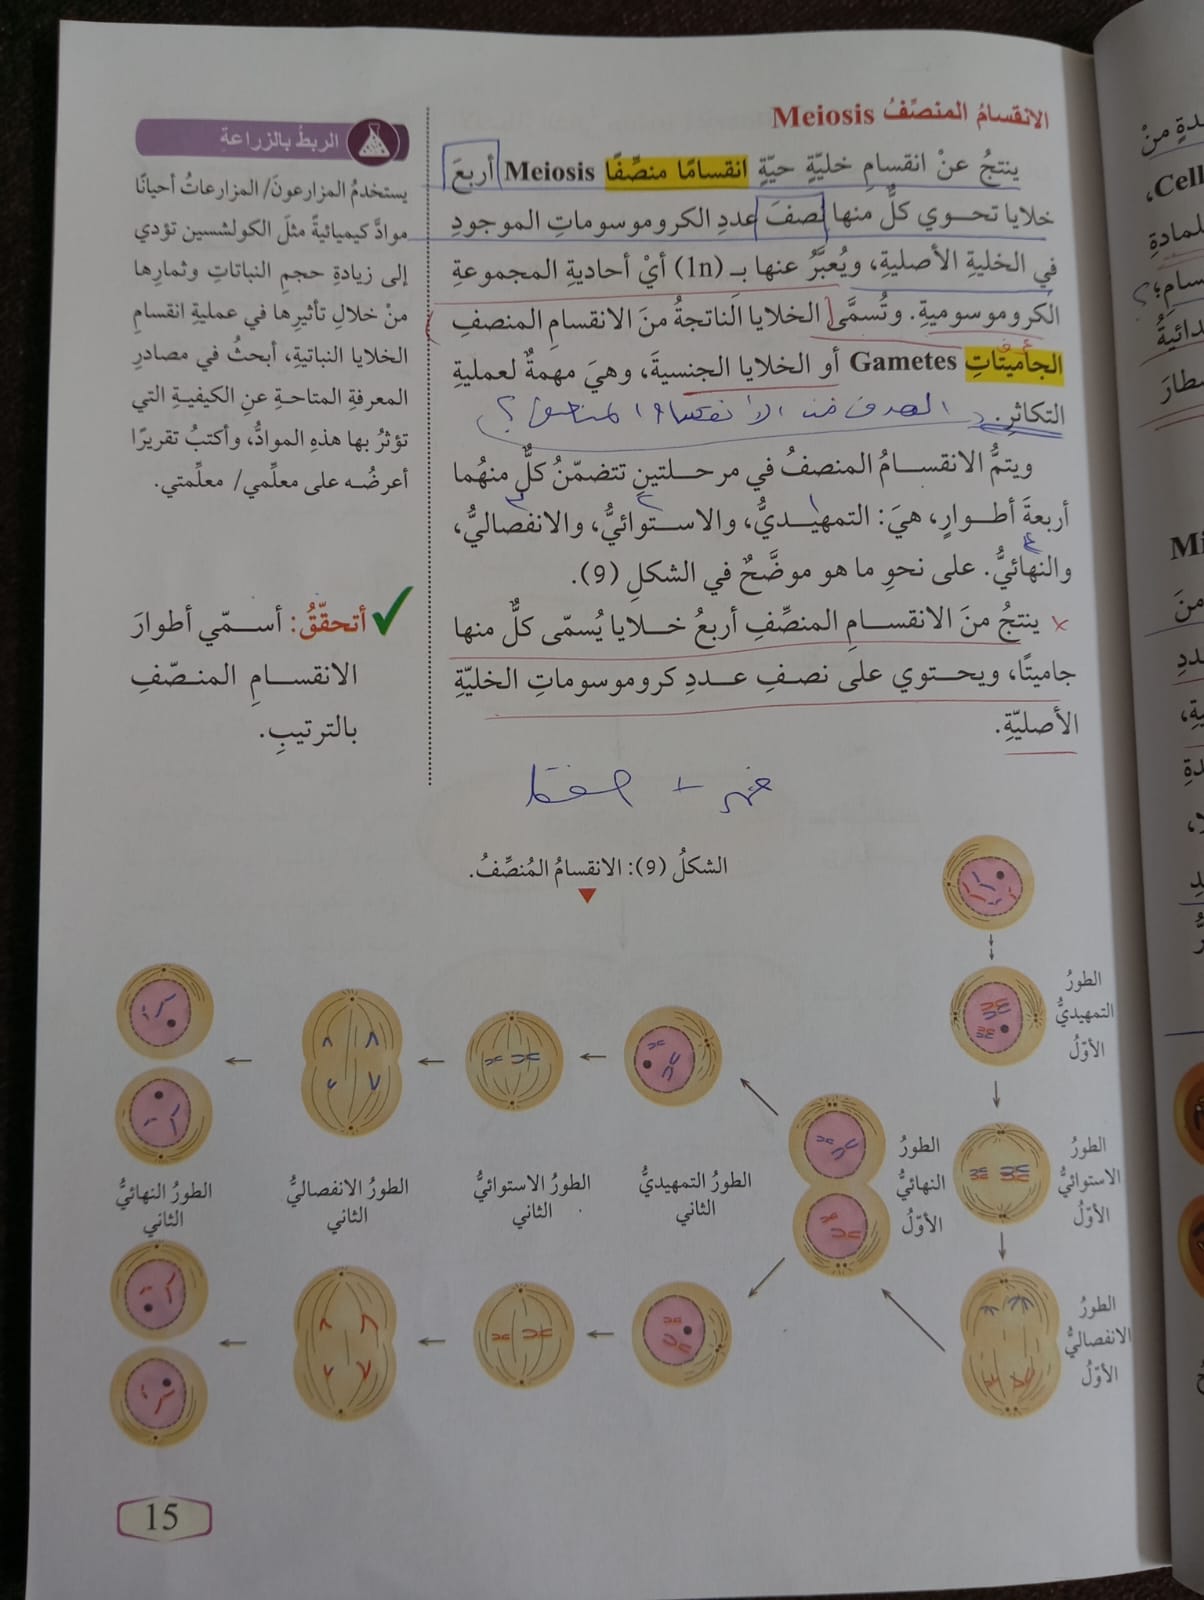 الانقسامُ المنصِّفُ Meiosis
ينتجُ عنْ انقسامِ خليّةٍ حيّةٍ انقسامًا منصِّفًا Meiosis أربعَ
خلايا تحوي كلٌّ منها نصفَ عددِ الكروموسوماتِ الموجودِ
في الخليةِ الأصليةِ، ويُعبَّرُ عنها بـِ (1n) أيْ أحاديةِ المجموعةِ
الكروموسوميةِ. وتُسمَّى الخلايا الناتجةُ منَ الانقسامِ المنصفِ
الجاميتاتِ Gametes أو الخلايا الجنسيةَ، وهيَ مهمةٌ لعمليةِ
التكاثرِ.
الهدف من الانقسام المنصف؟
ويتمُّ الانقسامُ المنصفُ في مرحلتينِ تتضمّنُ كلٌّ منهُما
أربعةَ أطوارٍ، هيَ: التمهيديُّ، والاستوائيُّ، والانفصاليُّ،
والنهائيُّ. على نحوِ ما هو موضَّحٌ في الشكلِ (9).
ينتجُ منَ الانقسامِ المنصِّفِ أربعُ خلايا يُسمّى كلٌّ منها
جاميتًا، ويحتوي على نصفِ عددِ كروموسوماتِ الخليّةِ
الأصليّةِ.
الربطُ بالزراعةِ
يستخدمُ المزارعونَ/ المزارعاتُ أحيانًا
موادَّ كيميائيةً مثلَ الكولشسين تؤدي
إلى زيادةِ حجمِ النباتاتِ وثمارِها
منْ خلالِ تأثيرِها في عمليةِ انقسامِ
الخلايا النباتيةِ، أبحثُ في مصادرِ
المعرفةِ المتاحةِ عنِ الكيفيةِ التي
تؤثرُ بها هذهِ الموادُّ، وأكتبُ تقريرًا
أعرضُه على معلِّمي/ معلِّمتي.
أتحقّقُ: أسمّي أطوارَ
الانقسامِ المنصّفِ
بالترتيبِ.
الشكلُ (9): الانقسامُ المُنصِّفُ.
الطورُ
التمهيديُّ
الأوّلُ
الطورُ
الاستوائيُّ
الأوّلُ
الطورُ
الانفصاليُّ
الأوّلُ
الطورُ
النهائيُّ
الأوّلُ
الطورُ التمهيديُّ
الثاني
الطورُ الاستوائيُّ
الثاني
الطورُ الانفصاليُّ
الثاني
الطورُ النهائيُّ
الثاني
15